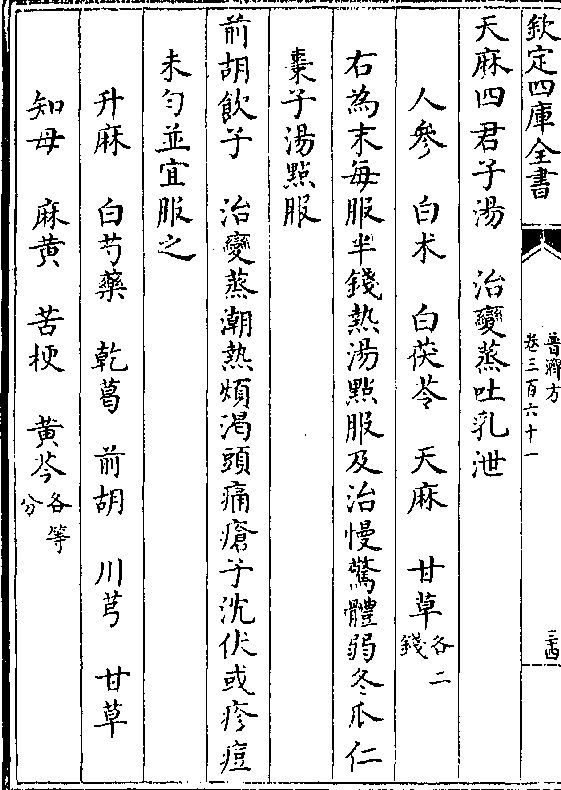 欽定四庫全書
普濟方
卷三百六十一
三十四
天麻四君子湯　治變蒸吐乳泄
人參　白朮　白茯苓　天麻　甘草各二錢
右為末每服半錢熱湯點服及治慢驚體弱冬瓜仁
棗子湯點服
前胡飲子　治變蒸潮熱煩渴頭痛瘡子沈伏或疹痘
未勻並宜服之
升麻　白芍藥　乾葛　前胡　川芎　甘草
知母　麻黃　苦梗　黃芩各等分